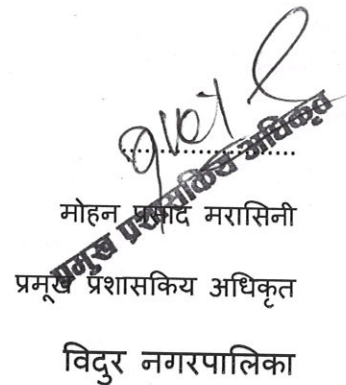 प्रमुख प्रशासकिय अधिकृत
मोहन प्रसाद मरासिनी
प्रमूख प्रशासकिय अधिकृत
विदुर नगरपालिका